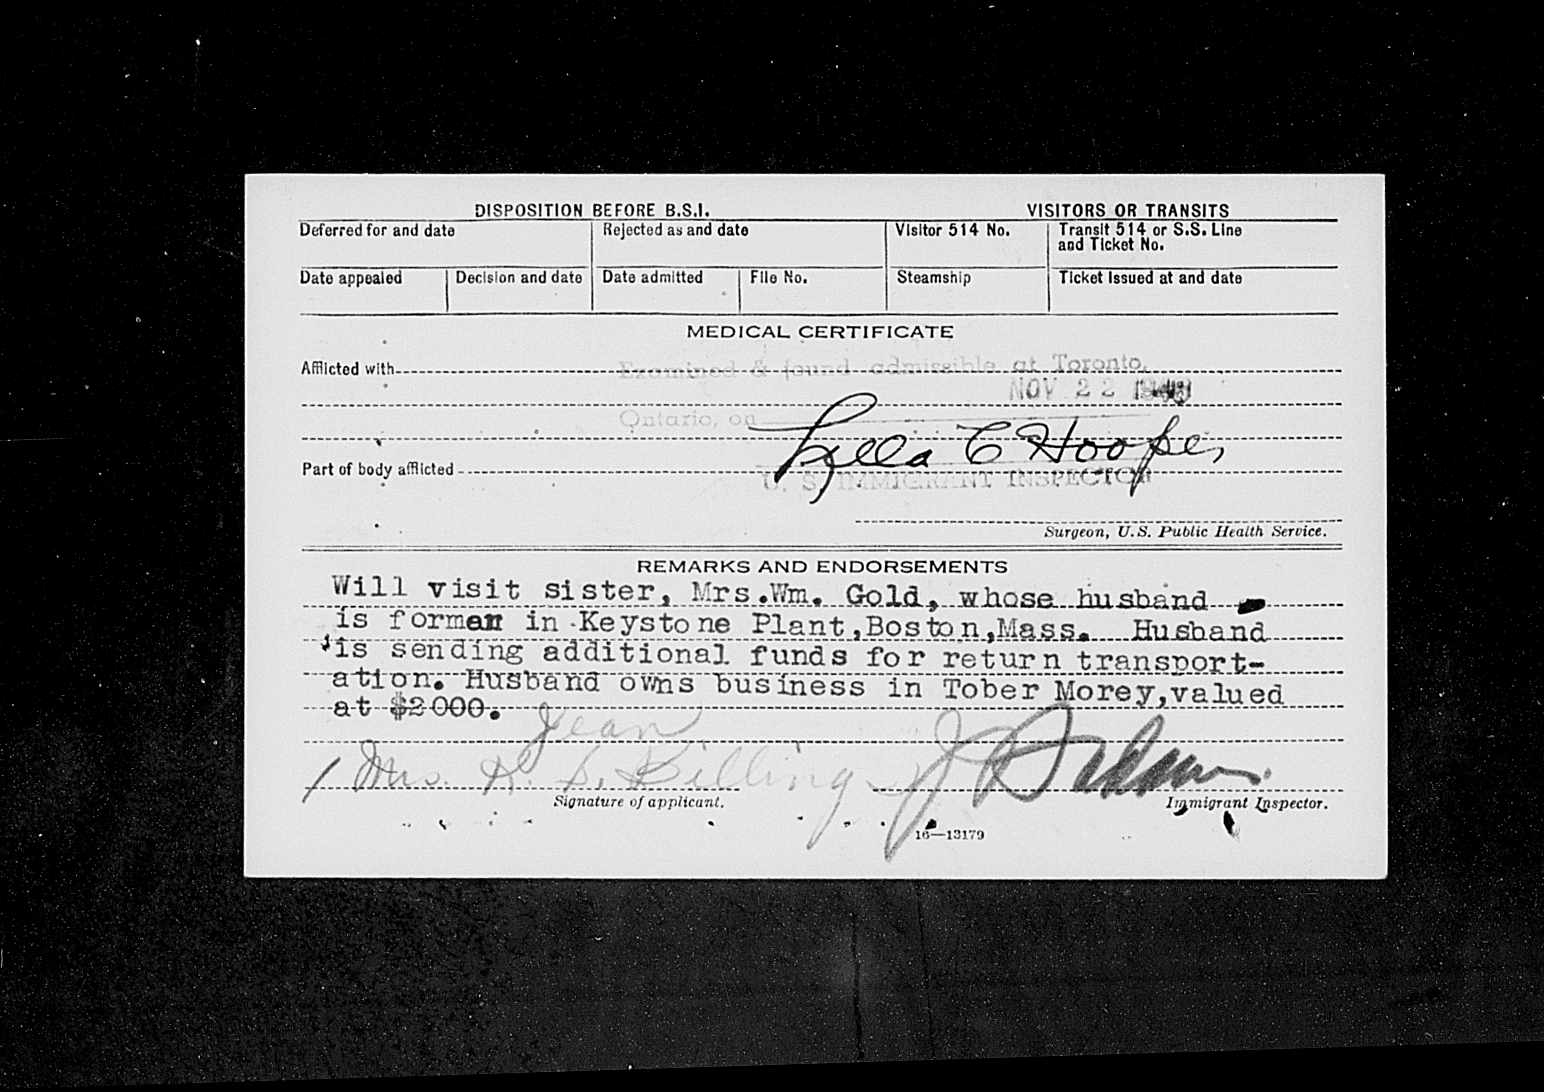 DISPOSITION BEFORE B.S.I. VISITORS OR TRANSITS
Deferred for and date Rejected as and date Visitor 514 No. Transit 514 or S.S. Line
and Ticket No.
Date appealed Decision and date Date admitted File No. Steamship Ticket issued at and date
MEDICAL CERTIFICATE
Afflicted with Examined & found admissible at Toronto,
NOV 22
Ontario, on
Lella C Hooper
Part of body afflicted
U. S. IMMIGRANT INSPECTOR
Surgeon, U.S. Public Health Service.
REMARKS AND ENDORSEMENTS
Will visit sister, Mrs.Wm. Gold, whose husband
is forman in Keystone Plant,Boston,Mass. Husband
is sending additional funds for return transport-
ation. Husband owns business in Tober Morey,valued
at $2000.
Jean
Mrs. R. S. Billing
Signature of applicant. Immigrant Inspector.
16—13179